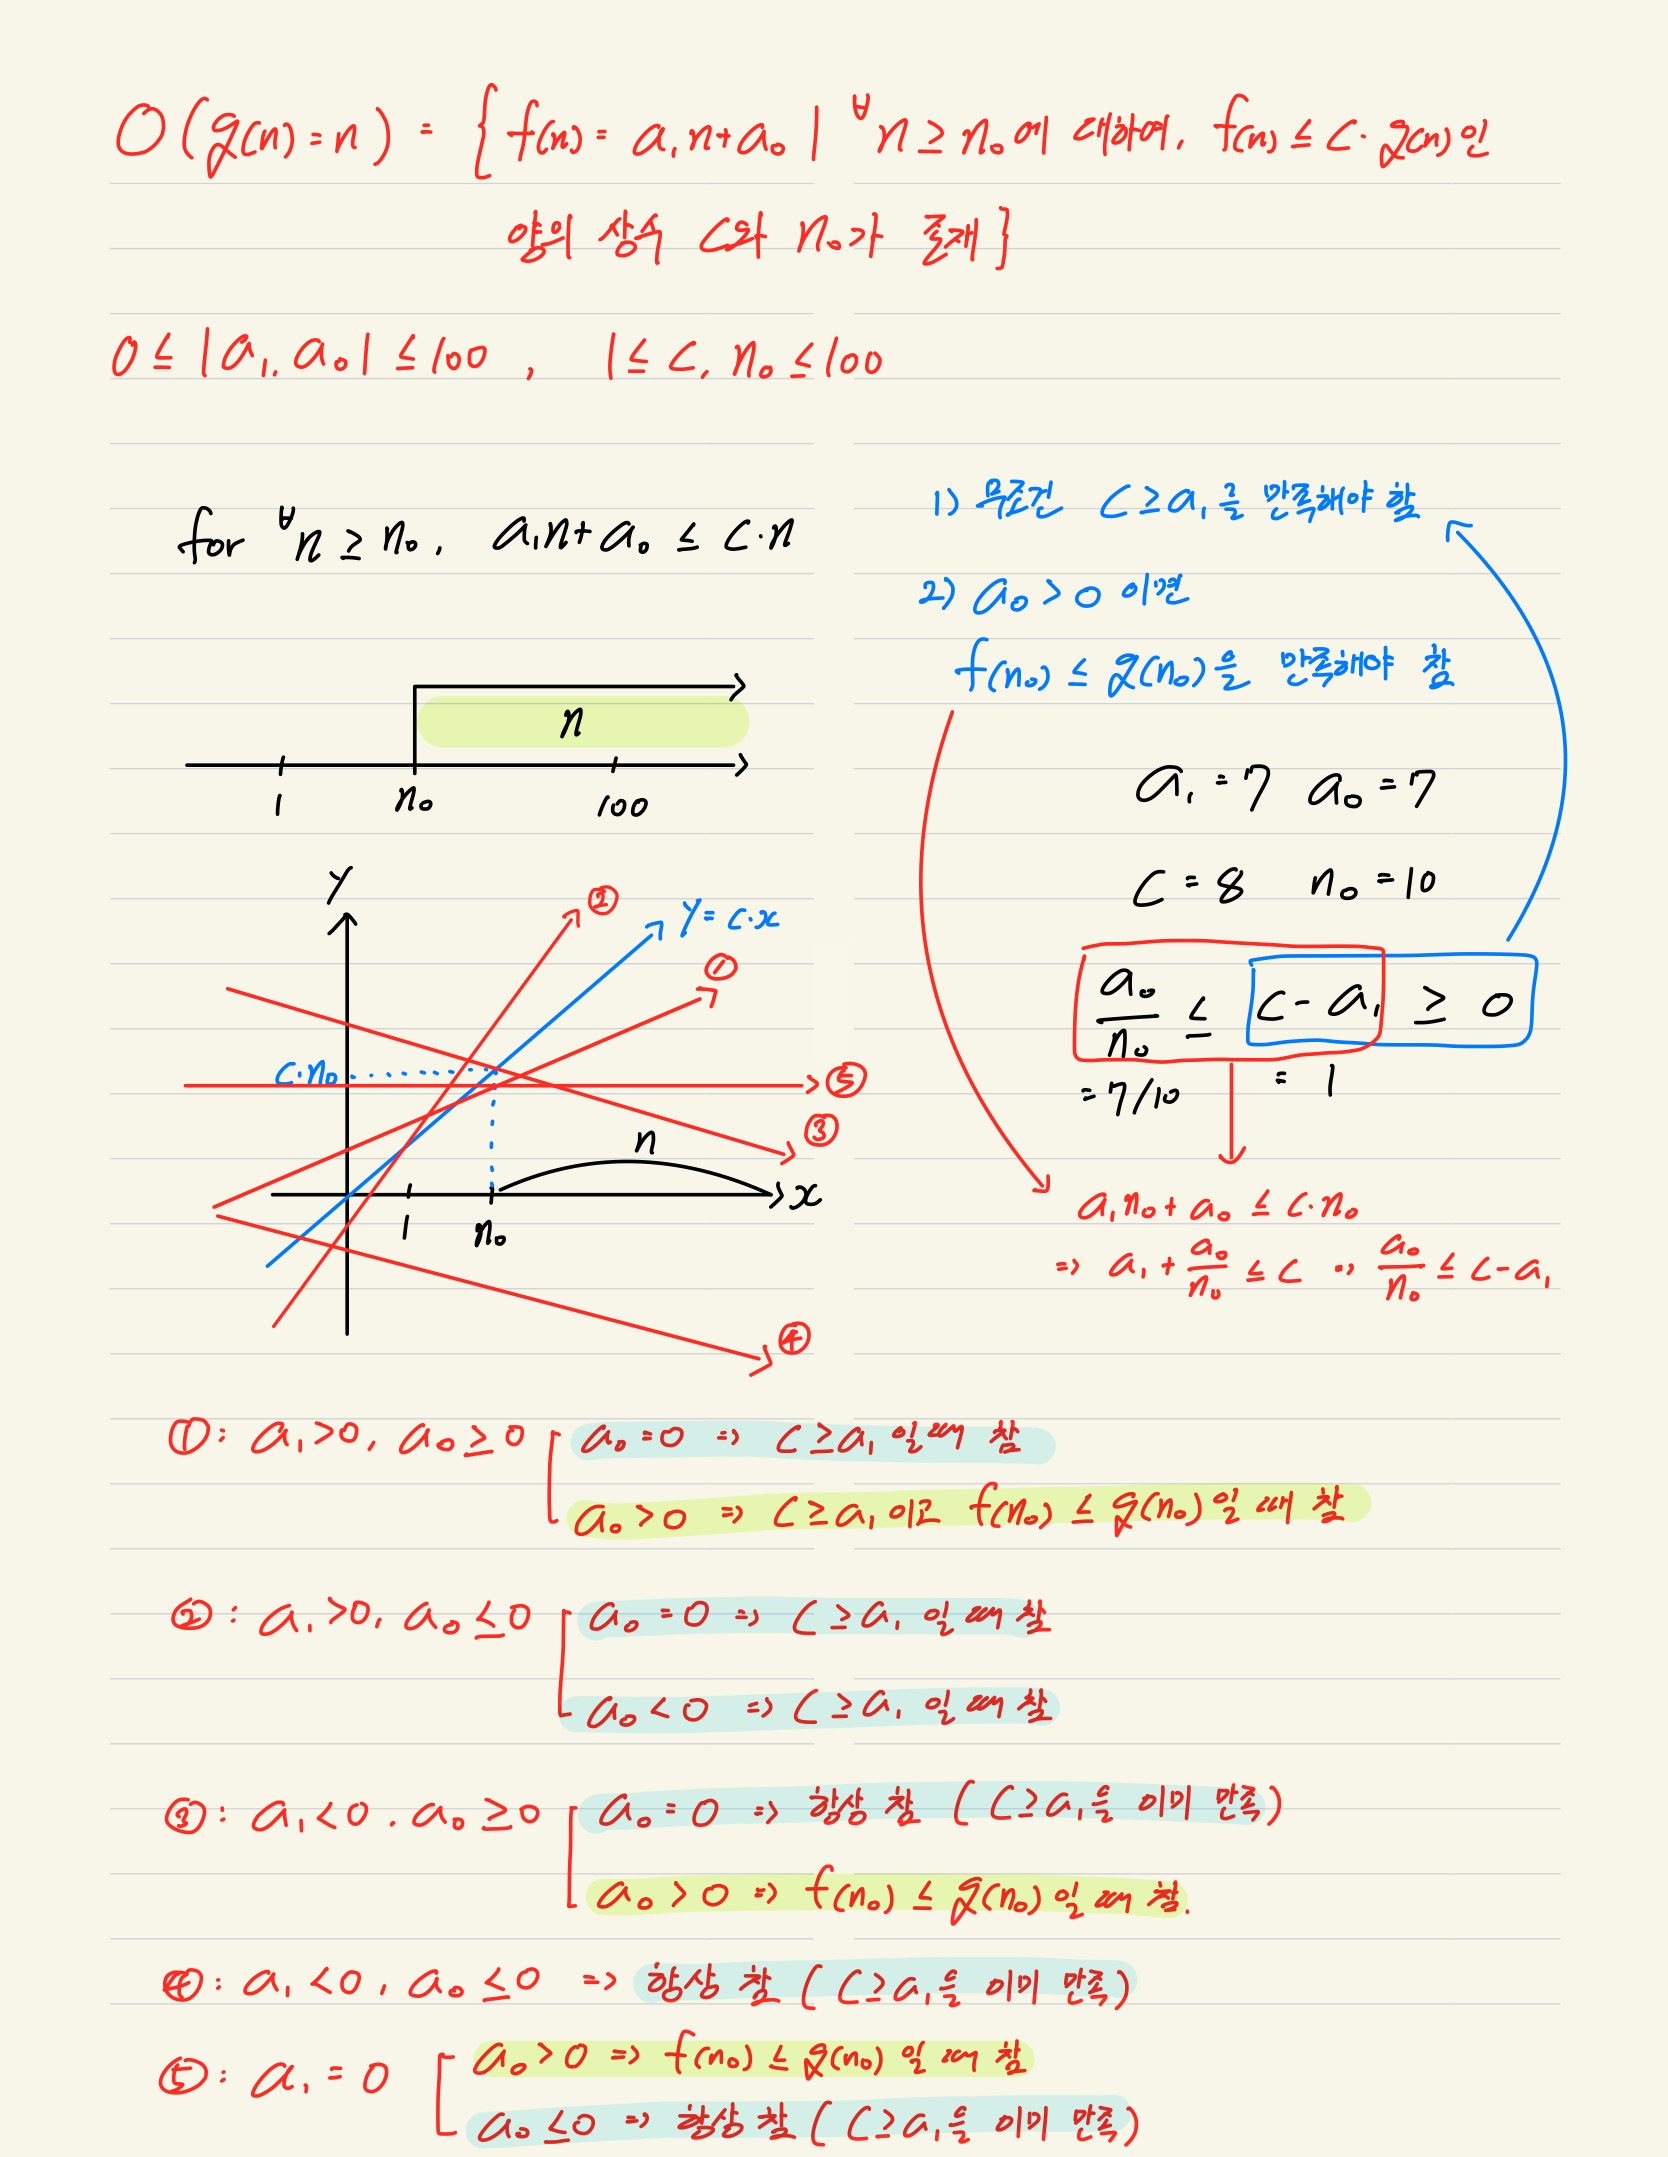 O(g(n)=n) = { f(n) = a₁n+a₀ | ∀n ≥ n₀에 대하여, f(n) ≤ c·g(n)인
양의 상수 c와 n₀가 존재 }
0 ≤ |a₁, a₀| ≤ 100 , 1 ≤ c, n₀ ≤ 100
for ∀n ≥ n₀, a₁n+a₀ ≤ c·n
n
1 n₀ 100
Y
②
Y = c·x
①
c·n₀
⑤
③
n
x
1 n₀
④
1) 무조건 c ≥ a₁를 만족해야 함
2) a₀ > 0 이면
f(n₀) ≤ g(n₀)을 만족해야 참
a₁ = 7 a₀ = 7
c = 8 n₀ = 10
a₀/n₀ ≤ c - a₁ ≥ 0
= 7/10 = 1
a₁n₀ + a₀ ≤ c·n₀
⇒ a₁ + a₀/n₀ ≤ c ⇒ a₀/n₀ ≤ c - a₁
①: a₁>0, a₀ ≥ 0 a₀ = 0 ⇒ c ≥ a₁ 일 때 참
a₀ > 0 ⇒ c ≥ a₁ 이고 f(n₀) ≤ g(n₀) 일 때 참
②: a₁>0, a₀ ≤ 0 a₀ = 0 ⇒ c ≥ a₁ 일 때 참
a₀ < 0 ⇒ c ≥ a₁ 일 때 참
③: a₁<0, a₀ ≥ 0 a₀ = 0 ⇒ 항상 참 (c ≥ a₁을 이미 만족)
a₀ > 0 ⇒ f(n₀) ≤ g(n₀) 일 때 참.
④: a₁<0, a₀ ≤ 0 ⇒ 항상 참 (c ≥ a₁을 이미 만족)
⑤: a₁ = 0 a₀ > 0 ⇒ f(n₀) ≤ g(n₀) 일 때 참
a₀ ≤ 0 ⇒ 항상 참 (c ≥ a₁을 이미 만족)